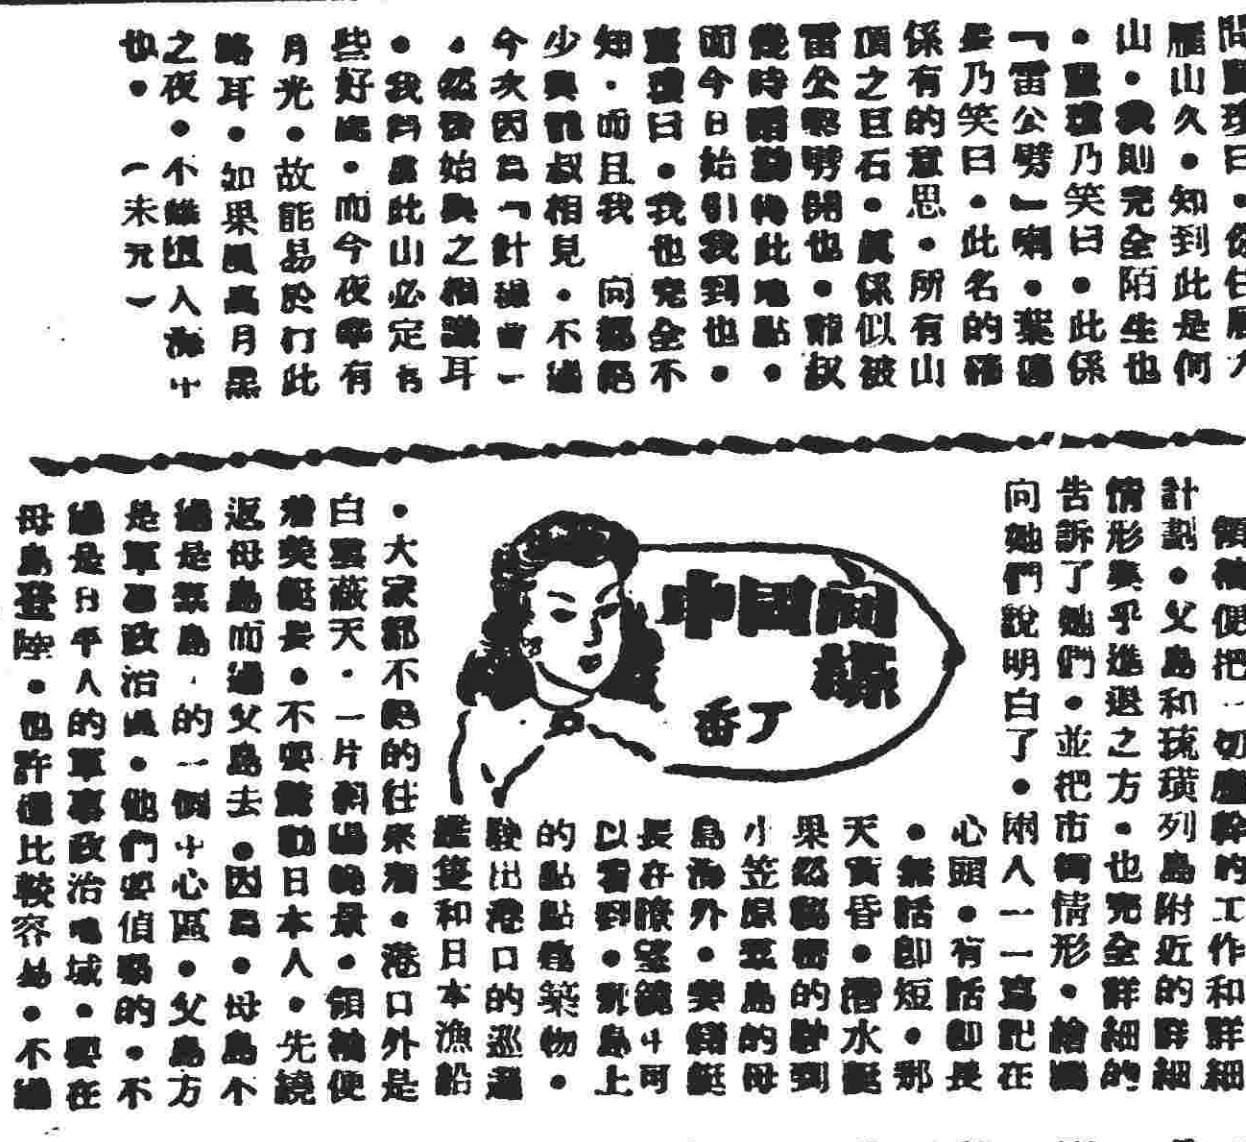 問靈瓊曰・你住雁
雁山久・知到此是何
山・我則完全陌生也
・靈瓊乃笑曰・此係
「雷公劈」喇・葉鴻
長乃笑曰・此名的確
係有的意思・所有山
頂之巨石・真係似被
雷公擊劈開也・龍叔
幾時躝勤到此地點・
而今日始引我到也・
靈瓊曰・我也完全不
知・而且我向都路
少與龍叔相見・不過
今次因為「針線會一
・然後始與之相識耳
・我料此山必定有
些好處・而今夜幸有
月光・故能易於行此
路耳・如果風高月黑
之夜・不難墮入海中
也・(未完)
中國間諜
番丁
領袖便把一切應幹的工作和詳細
計劃・父島和琉璜列島附近的詳細
情形與乎進退之方・也完全詳細的
告訴了她們・並把市街情形・繪圖
向她們說明白了・兩人一一寫記在
心頭・有話即長
・無話即短・那
天黃昏・潛水艇
果然秘密的駛到
小笠原羣島的母
島海外・美鱗艇
長在瞭望鏡中可
以看到・那島上
的點點建築物・
駛出港口的巡邏
艦隻和日本漁船
・大家都不絕的往來着・港口外是
白雲蔽天・一片斜陽晚景・領袖便
着美艇長・不要驚動日本人・先繞
返母島而過父島去・因為・母島不
過是羣島・的一個中心區・父島方
是軍事政治區・他們要偵緝的・不
過是日平人的軍事政治區域・要在
母島登陸・也許還比較容易・不過